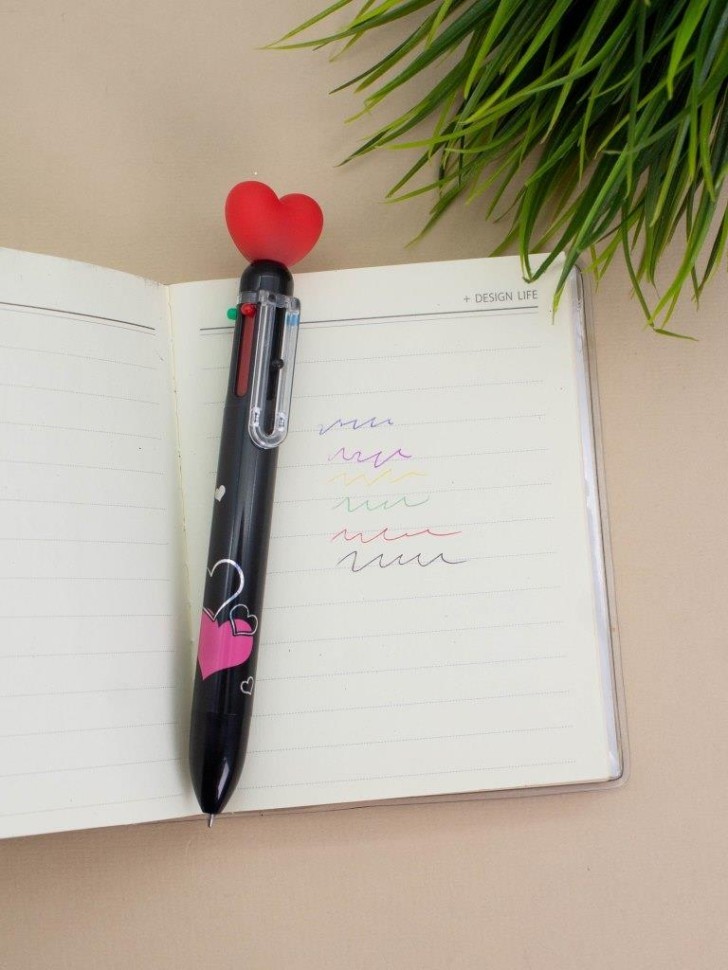 + DESIGN LIFE